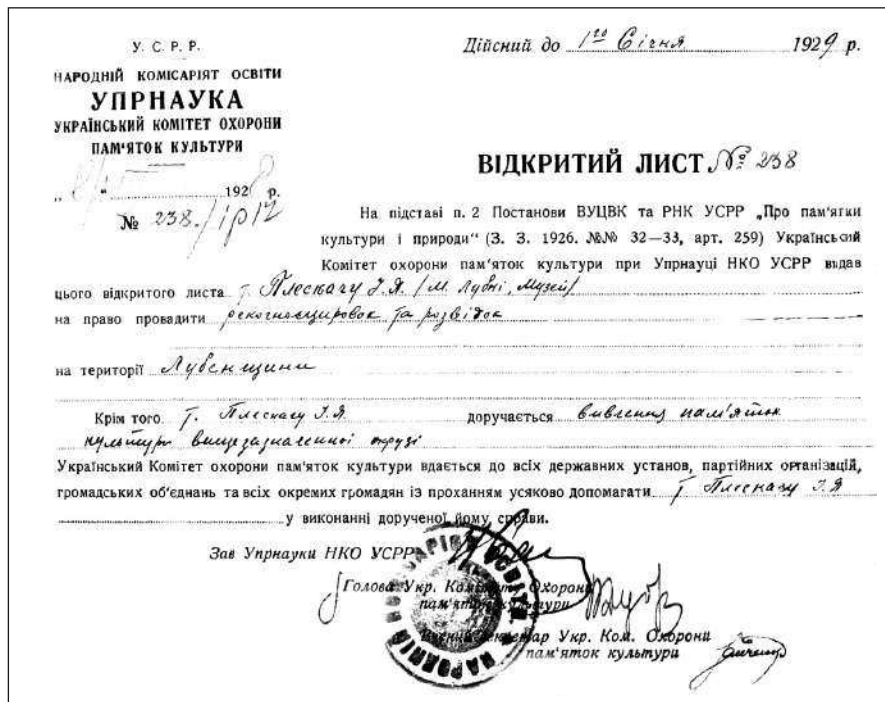 У. С. Р. Р.
НАРОДНІЙ КОМІСАРІЯТ ОСВІТИ
УПРНАУКА
УКРАЇНСЬКИЙ КОМІТЕТ ОХОРОНИ
ПАМ'ЯТОК КУЛЬТУРИ
1928 р.
№ 238.
Дійсний до 1го Січня 1929 р.
ВІДКРИТИЙ ЛИСТ № 238
На підставі п. 2 Постанови ВУЦВК та РНК УСРР „Про пам'ятки
культури і природи“ (З. З. 1926. №№ 32—33, арт. 259) Український
Комітет охорони пам'яток культури при Упрнауці НКО УСРР видав
цього відкритого листа т. Плескачу І.Я. /м. Лубні, Музей/
на право провадити рекогносцировок та розвідок
на території Лубенщини
Крім того т. Плескачу І.Я. доручається вивлення пам'яток
культури вищезазначенної округі
Український Комітет охорони пам'яток культури вдається до всіх державних установ, партійних організацій,
громадських об'єднань та всіх окремих громадян із проханням усяково допомагати т. Плескачу І.Я
у виконанні дорученої йому справи.
Зав Упрнауки НКО УСРР
Голова Укр. Комітету Охорони
пам'яток культури
Вчений секретар Укр. Ком. Охорони
пам'яток культури
НАРОДНІЙ КОМІСАРІЯТ ОСВІТИ